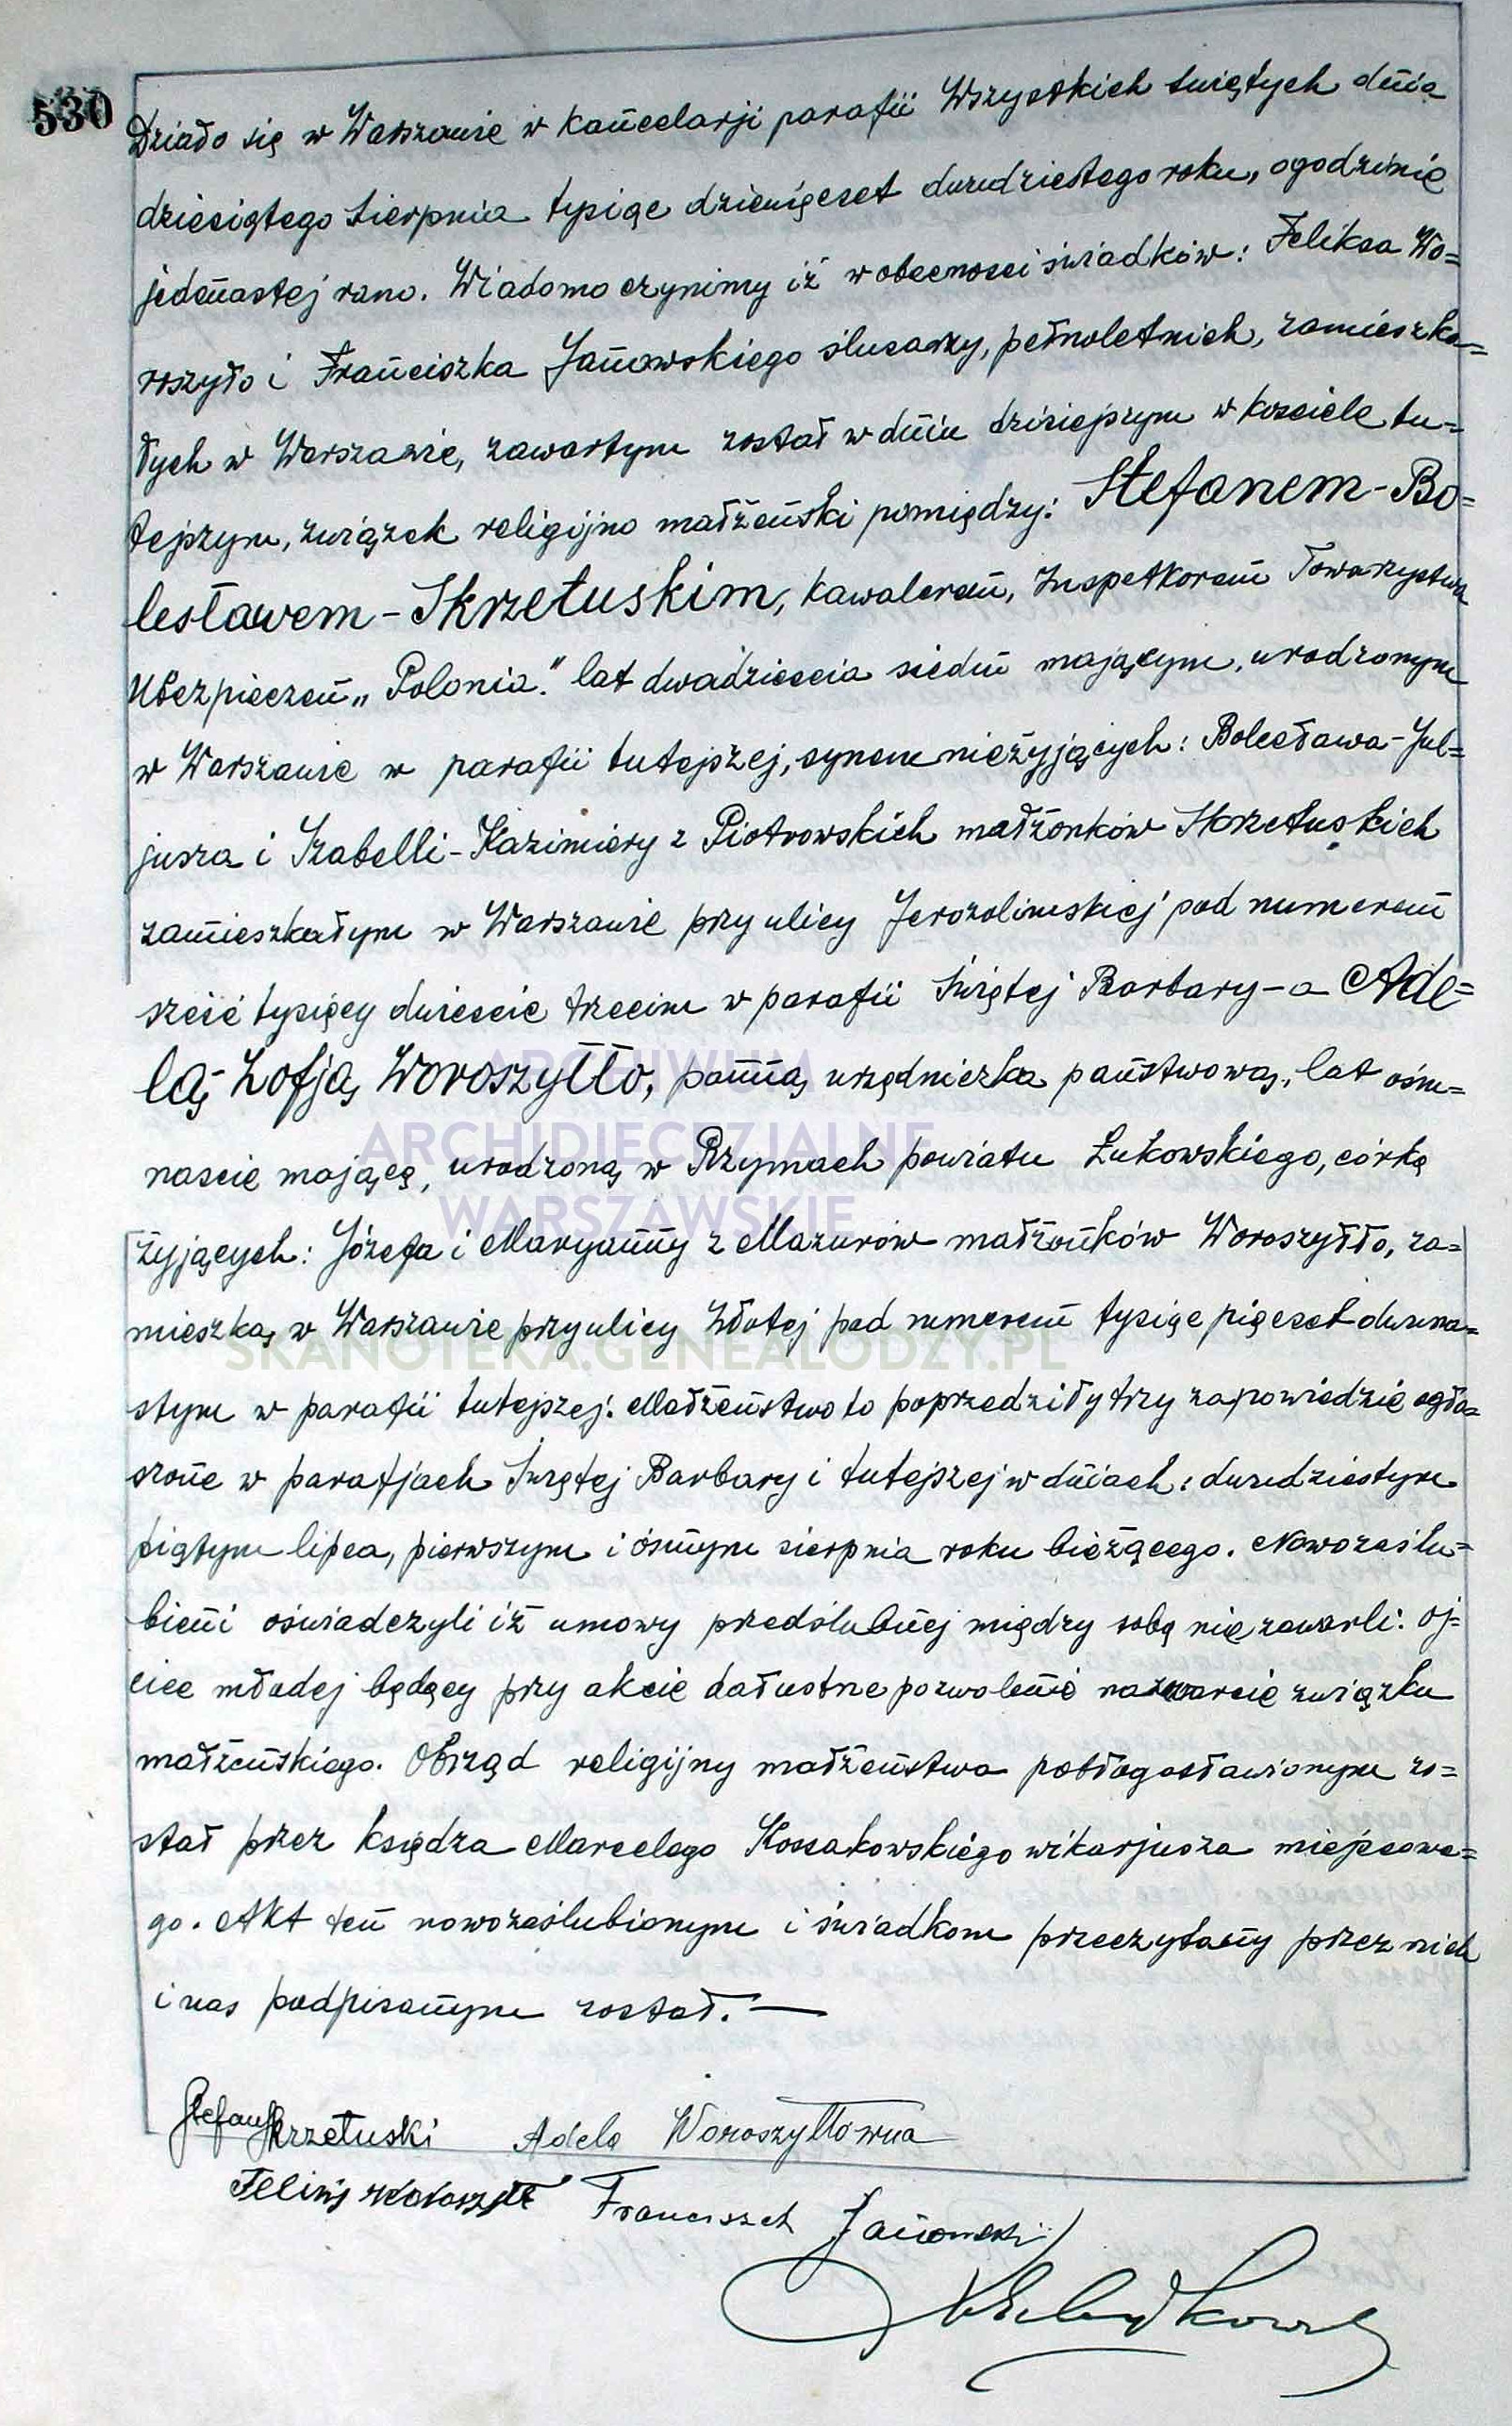 530
Działo się w Warszawie w kancelarji parafii Wszystkich Świętych dnia
dziesiątego Sierpnia tysiąc dziewięćset dwudziestego roku, o godzinie
jedenastej rano. Wiadomo czynimy iż w obecności świadków: Feliksa Wo=
roszyło i Franciszka Janowskiego ślusarzy, pełnoletnich, zamieszka=
łych w Warszawie, zawartym został w dniu dzisiejszym w kosciele tu=
tejszym, związek religijno małżeński pomiędzy: Stefanem-Bo=
lesławem-Skrzetuskim, kawalerem, Inspektorem Towarzystwa
Ubezpieczeń „Polonia." lat dwadziescia siedm mającym, urodzonym
w Warszawie w parafii tutejszej, synem nieżyjących: Bolesława-Jul=
jusza i Izabelli-Kazimiery z Piotrowskich małżonków Skrzetuskich
zamieszkałym w Warszawie przy ulicy Jerozolimskiej pod numerem
sześć tysięcy dwieście trzecim w parafii Świętej Barbary-a Ade=
lą-Zofją Woroszyłło, panną, urzędniczka państwową, lat ośm=
nascie mającą, urodzoną w Rzymach powiatu Łukowskiego, córką
żyjących: Józefa i Maryanny z Mazurów małżonków Woroszyłło, za=
mieszką w Warszawie przy ulicy Złotej pod numerem tysiąc pięcset dwuna=
stym w parafii tutejszej. Małżeństwo to poprzedziły trzy zapowiedzie ogło=
szone w parafjach Świętej Barbary i tutejszej w dniach: dwudziestym
piątym lipca, pierwszym i ósmym sierpnia roku bieżącego. Nowozaślu=
bieni oświadczyli iż umowy przedślubnej między sobą nie zawarli. Oj=
ciec młodej będący przy akcie dał ustne pozwolenie na zawarcie związku
małżeńskiego. Obrząd religijny małżeństwa pobłogosławionym zo=
stał przez księdza Marcelego Kossakowskiego wikarjusza miejscowe=
go. Akt ten nowozaślubionym i świadkom przeczytany przez nich
i nas podpisanym został. —
Stefan Skrzetuski Adela Woroszyłłówna
Feliks Franciszek Janowski
ARCHIWUM
ARCHIDIECEZJALNE
WARSZAWSKIE
SKANOTEKA.GENEALODZY.PL